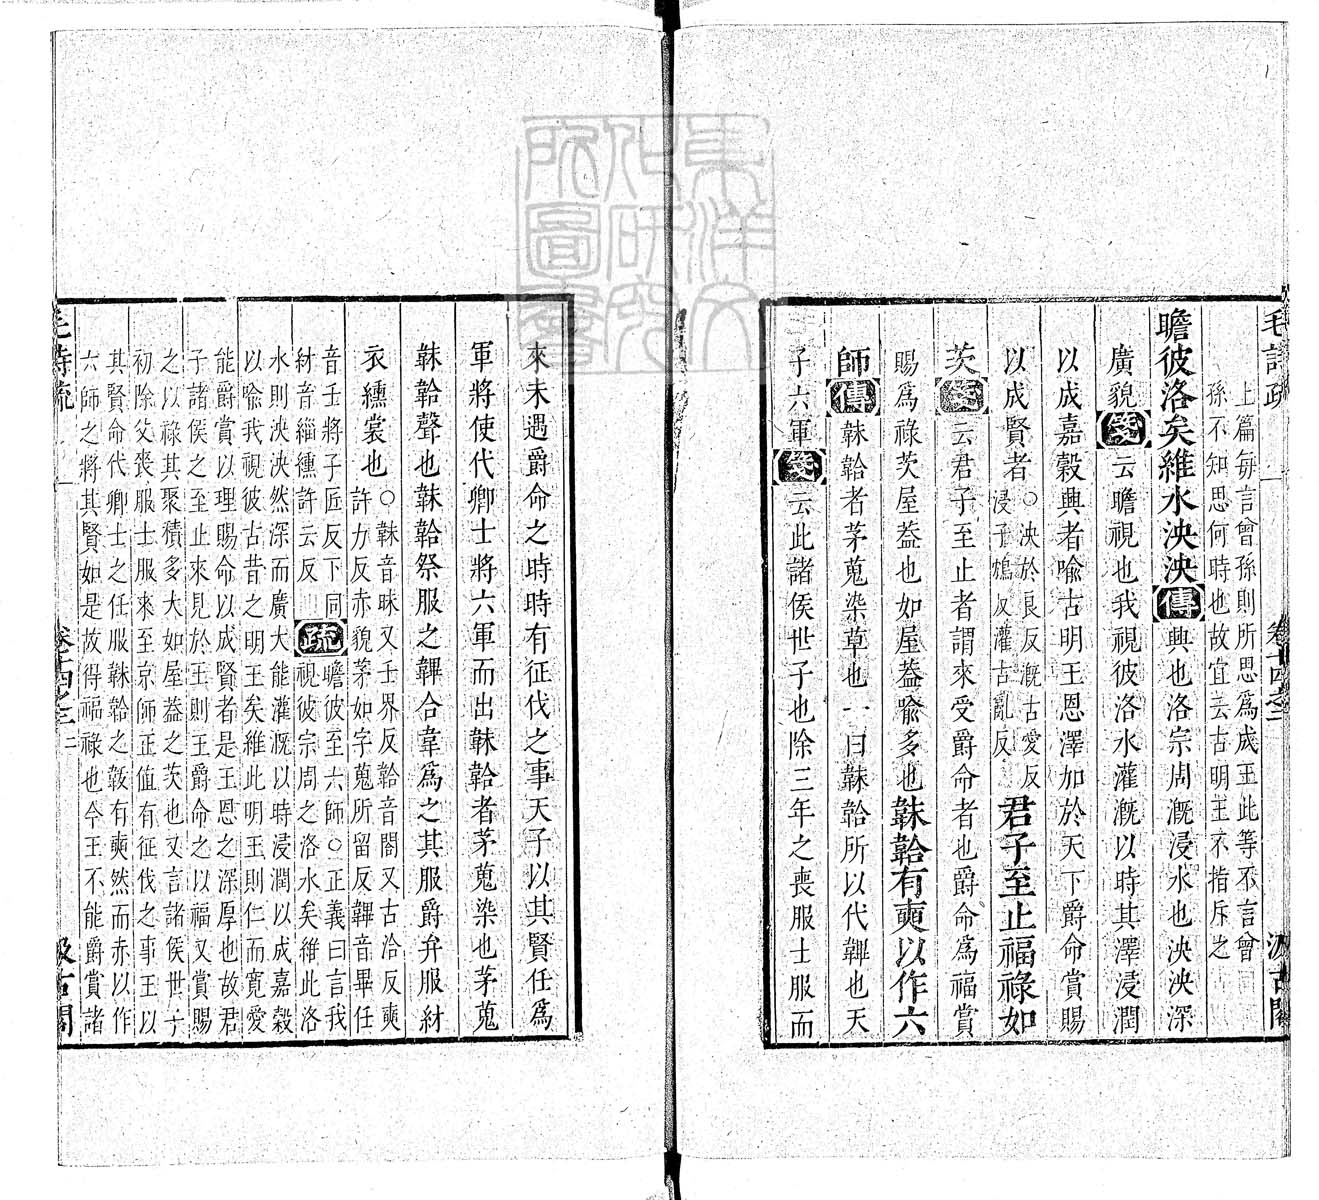 毛詩疏
卷十四之二
汲古閣
上篇每言曾孫則所思為成王此等不言曾
孫不知思何時也故宜云古明王不指斥之
瞻彼洛矣維水泱泱傳興也洛宗周溉浸水也泱泱深
廣貌箋云瞻視也我視彼洛水灌溉以時其澤浸潤
以成嘉穀興者喻古明王恩澤加於天下爵命賞賜
以成賢者○泱於良反溉古愛反
浸子鴆反灌古亂反君子至止福祿如
茨箋云君子至止者謂來受爵命者也爵命為福賞
賜為祿茨屋蓋也如屋蓋喻多也韎韐有奭以作六
師傳韎韐者茅蒐染草也一曰韎韐所以代韠也天
子六軍箋云此諸侯世子也除三年之喪服士服而
來未遇爵命之時時有征伐之事天子以其賢任為
軍將使代卿士將六軍而出韎韐者茅蒐染也茅蒐
韎韐聲也韎韐祭服之韠合韋為之其服爵弁服紂
衣纁裳也○韎音昧又壬界反韐音閤又古洽反奭
許力反赤貌茅如字蒐所留反韠音畢任
音壬將子匠反下同
紂音緇纁許云反疏瞻彼至六師○正義曰言我
視彼宗周之洛水矣維此洛
水則泱泱然深而廣大能灌溉以時浸潤以成嘉穀
以喻我視彼古昔之明王矣維此明王則仁而寬愛
能爵賞以理賜命以成賢者是王恩之深厚也故君
子諸侯之至止來見於王則王爵命之以福又賞賜
之以祿其聚積多大如屋蓋之茨也又言諸侯世子
初除父喪服士服來至京師正值有征伐之事王以
其賢命代卿士之任服韎韐之韍有奭然而赤以作
六師之將其賢如是故得福祿也今王不能爵賞諸
毛詩疏
卷十四之二
二
汲古閣